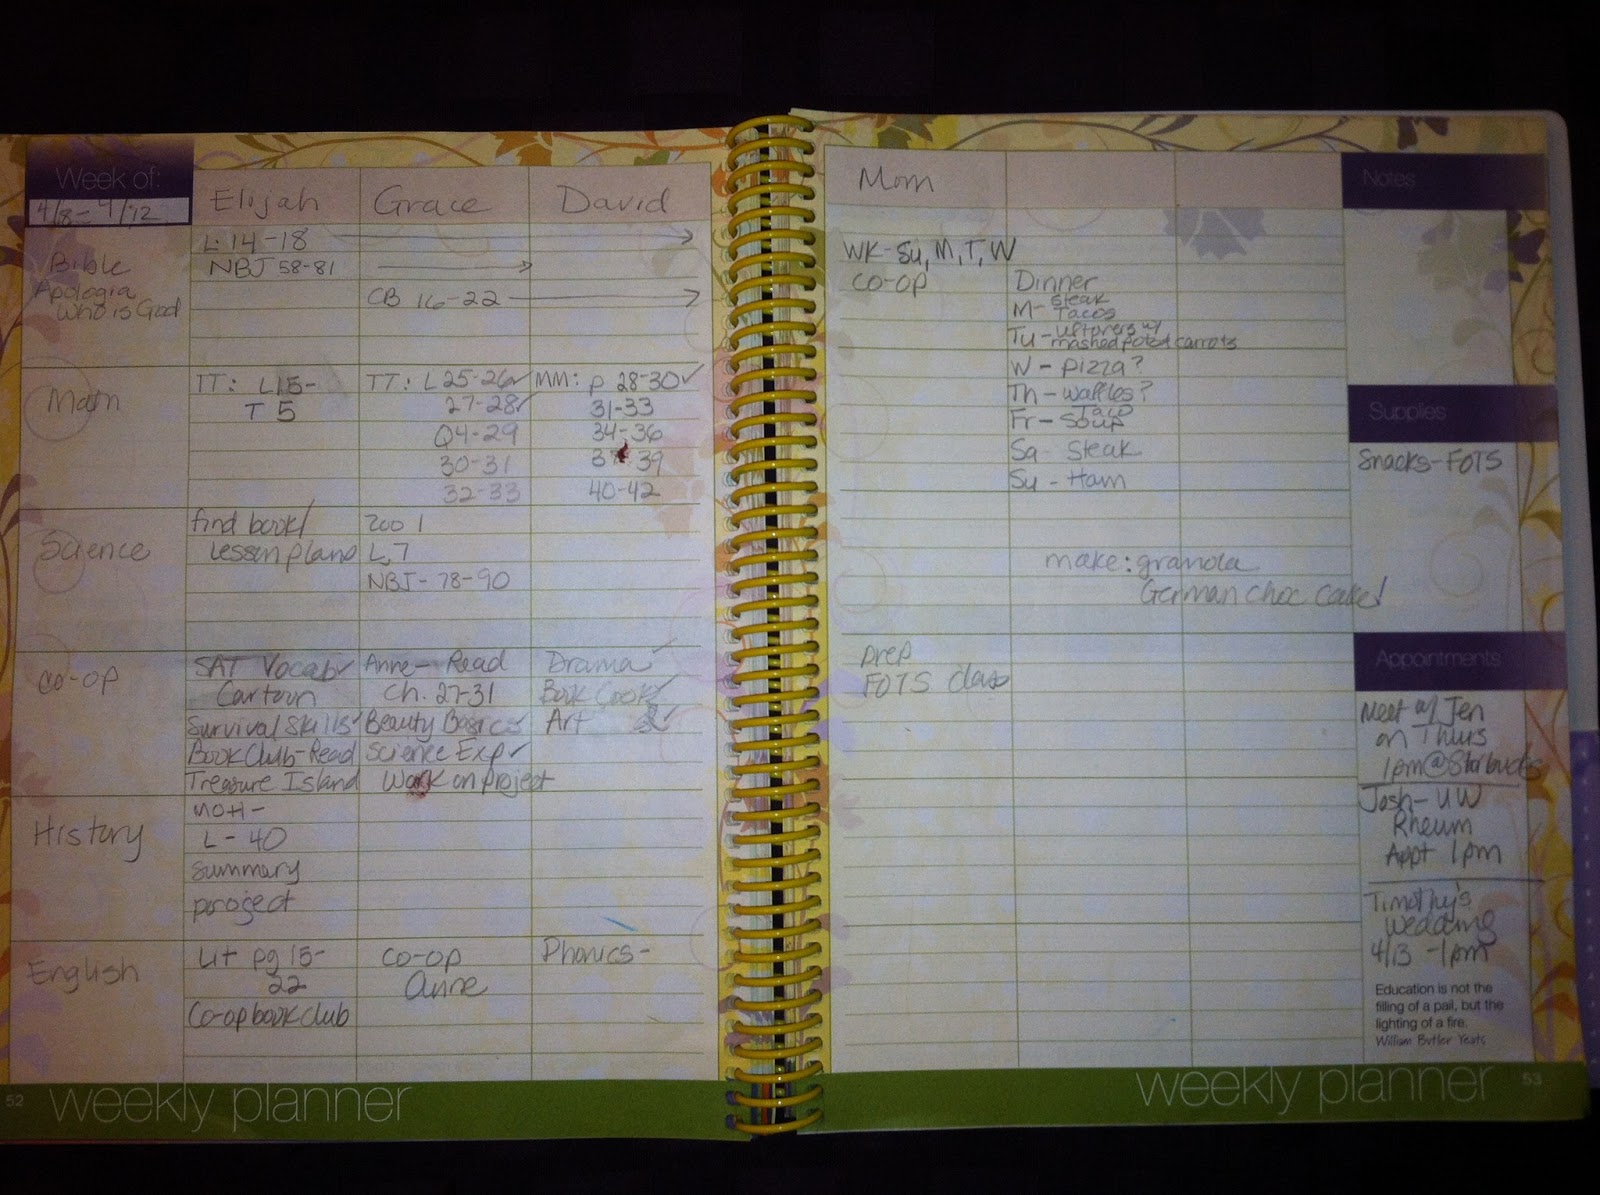 Week of:
4/8-4/12
Elijah
Grace
David
Bible
Apologia
Who is God
L. 14-18
NBJ 58-81
CB 16-22
Math
TT: L15-
T 5
TT: L25-26✓
27-28✓
Q4-29
30-31
32-33
MM: p 28-30✓
31-33
34-36
37-39
40-42
Science
find book/
lesson plans
Zoo 1
L.7
NBJ-78-90
Co-op
SAT Vocab✓
Cartoon
Survival Skills✓
Book Club-Read
Treasure Island
Anne-Read
Ch. 27-31
Beauty Basics✓
Science Exp✓
Work on project
Drama✓
Book Cook✓
Art ✓
History
MOH-
L-40
summary
project
English
Lit pg 15-
22
Co-op book club
Co-op
Anne
Phonics-
52 weekly planner
Mom
WK-Su, M, T, W
CO-OP
Dinner
M- Steak
Tacos
Tu- w/
mashed potat carrots
W - pizza?
Th - waffles?
Fr - Taco
Soup
Sa - Steak
Su - Ham
make: granola
German choc cake✓
prep
FOTS class
Notes
Supplies
Snacks-FOTS
Appointments
Meet w/ Jen
on Thurs
1pm@Starbucks
Josh-UW
Rheum
Appt 1pm
Timothy's
Wedding
4/13 -1pm
Education is not the
filling of a pail, but the
lighting of a fire.
William Butler Yeats
weekly planner 53